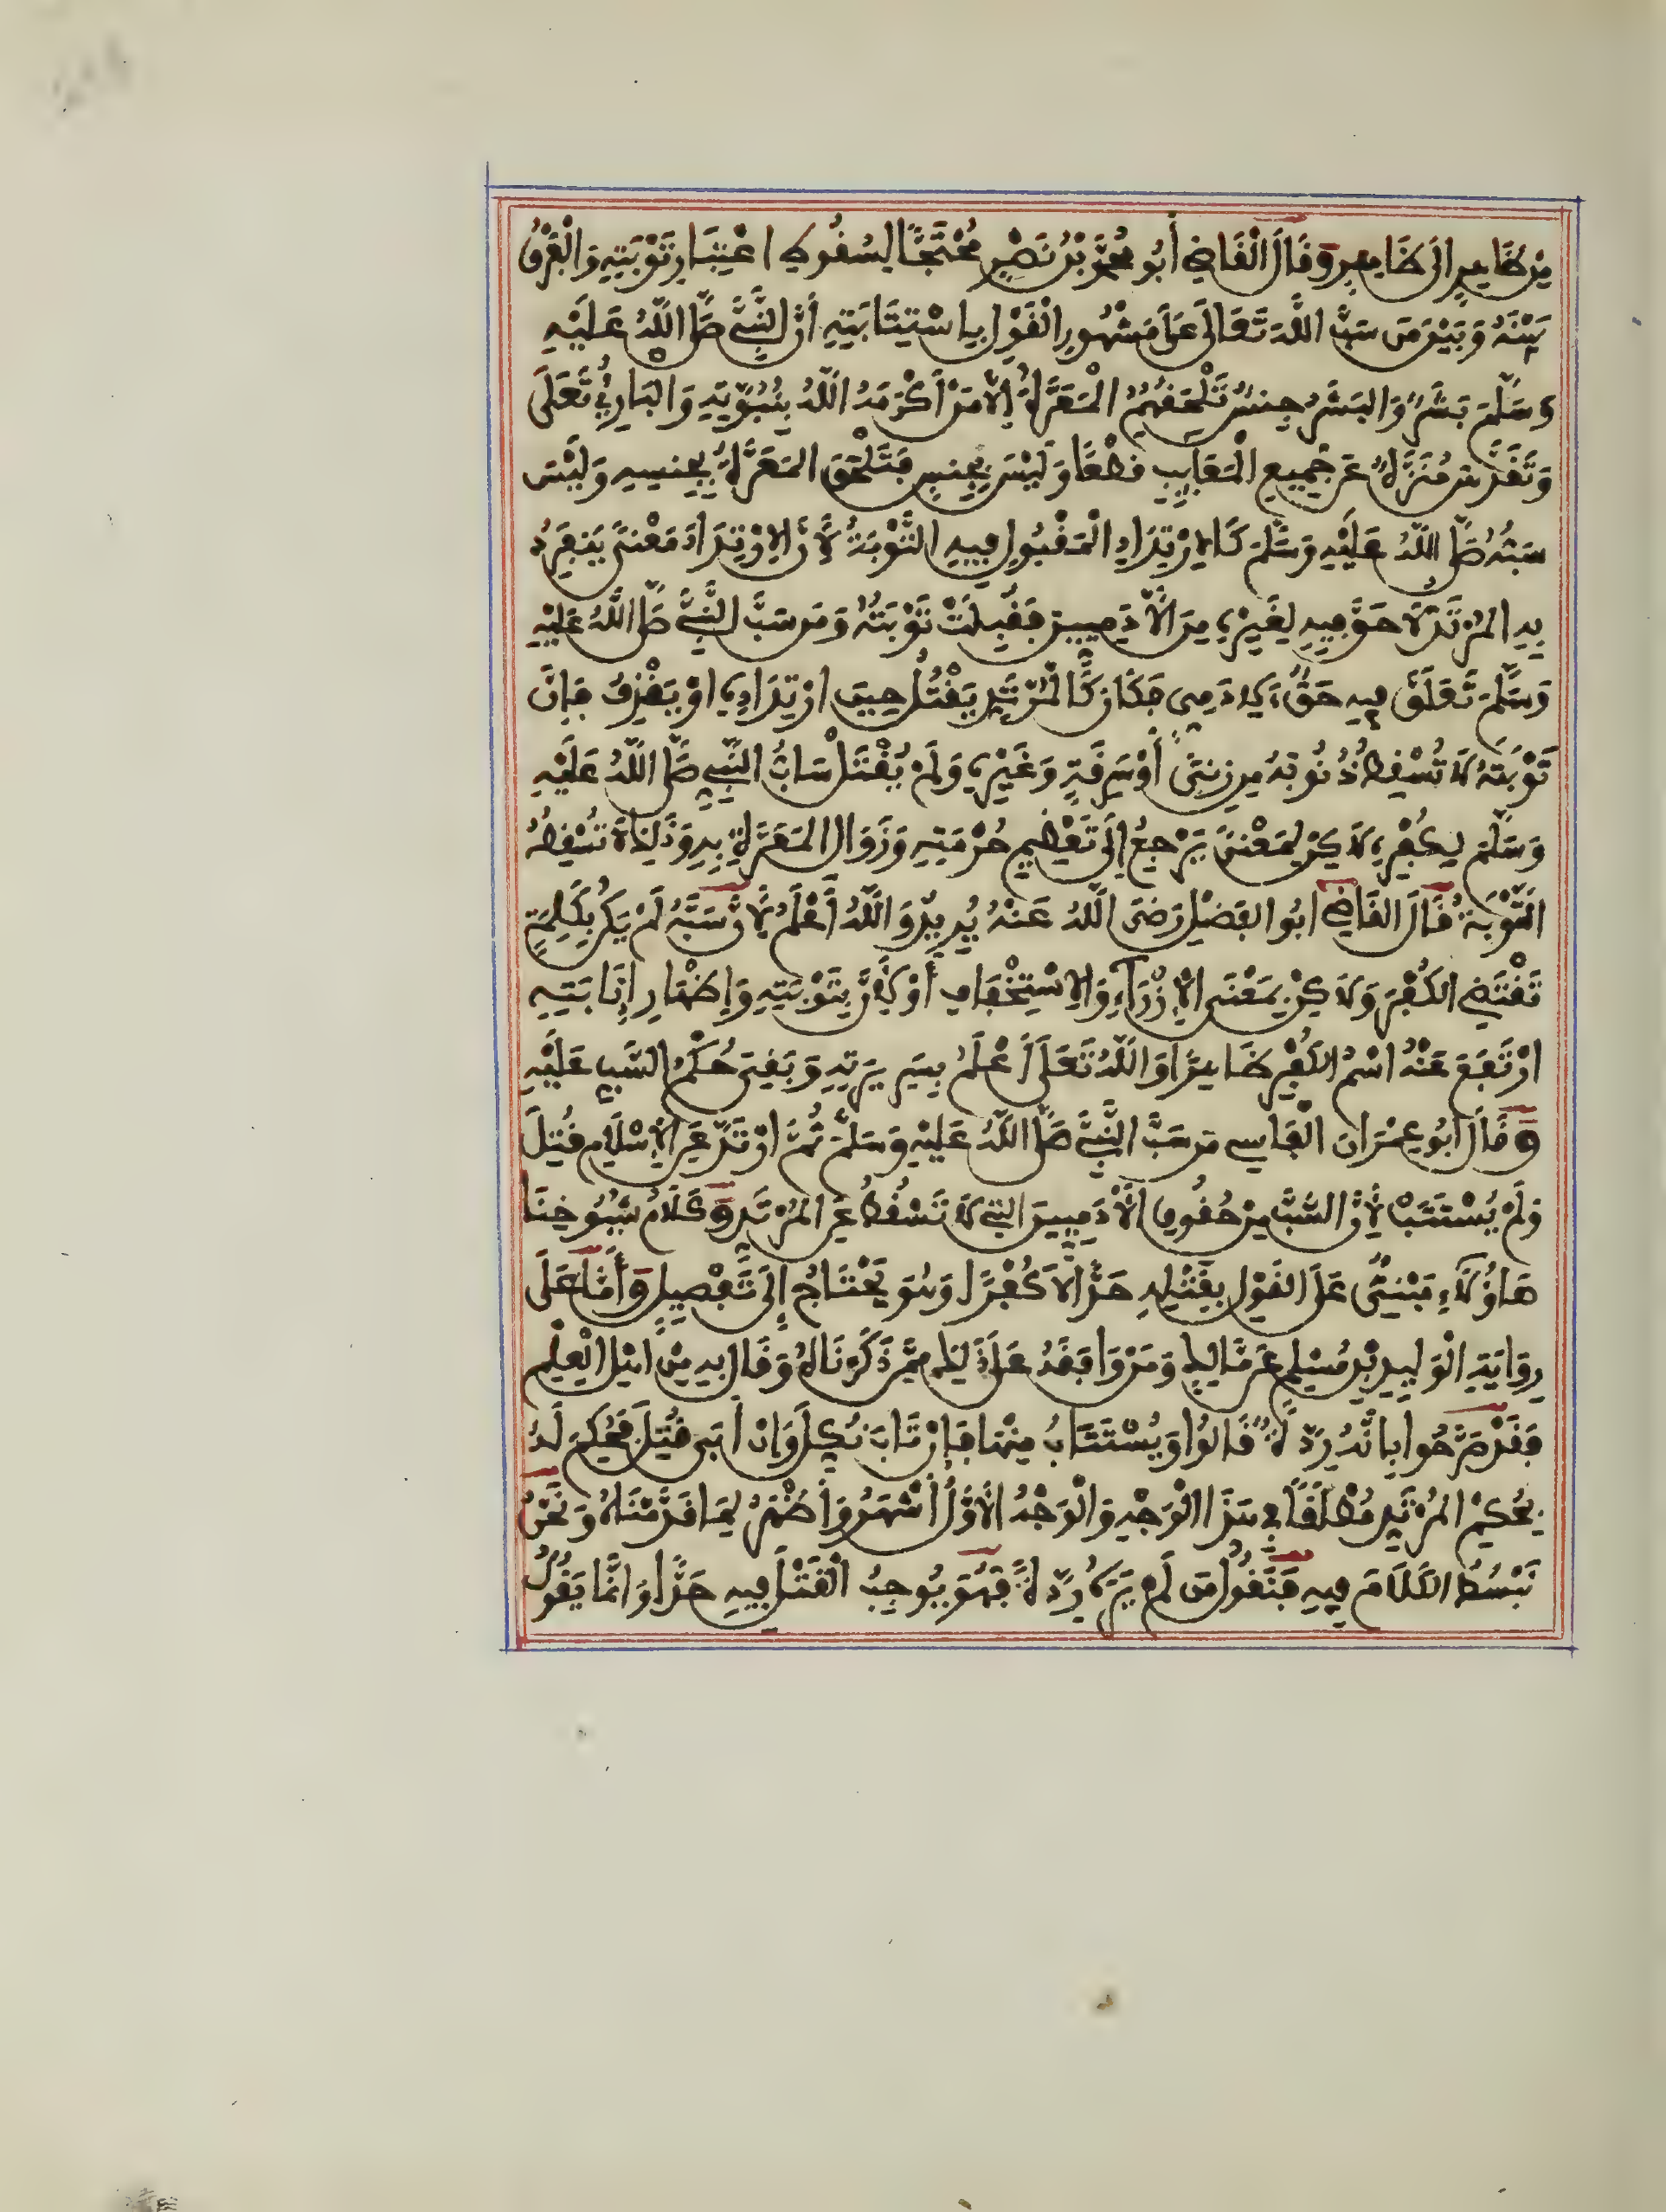 مِن ظَاهِرٍ إِلَى ظَاهِرٍ وَقَالَ الْقَاضِي أَبُو مُحَمَّدِ بْنُ نَصْرٍ مُحْتَجًّا لِسُقُوطِ اعْتِبَارِ تَوْبَتِهِ وَالْفَرْقُ
بَيْنَهُ وَبَيْنَ مَن سَبَّ اللَّهَ تَعَالَى عَلَى مَشْهُورِ الْقَوْلِ بِاسْتِتَابَتِهِ أَنَّ النَّبِيَّ صَلَّى اللَّهُ عَلَيْهِ
وَسَلَّمَ بَشَرٌ وَالبَشَرُ جِنسٌ تَلْحَقُهُمُ الْمَعَرَّةُ إِلَّا مَنْ أَكْرَمَهُ اللَّهُ بِنُبُوَّتِهِ وَالبَارِئُ تَعَلَى
وَتَقَدَّسَ مُنَزَّهٌ عَن جَمِيعِ الْمَعَايِبِ قَطْعًا وَلَيْسَ بِجِنسٍ فَتَلْحَقَ المَعَرَّةُ بِجِنسِهِ وَلَيْسَ
سَبُّهُ صَلَّى اللَّهُ عَلَيْهِ وَسَلَّمَ كَالِارْتِدَادِ الْمَقْبُولِ فِيهِ التَّوْبَةُ لِأَنَّ الِارْتِدَادَ مَعْنًى يَنفَرِدُ
بِهِ المُرْتَدُّ لَا حَقَّ فِيهِ لِغَيْرِهِ مِنَ الْآدَمِيِّينَ فَقُبِلَتْ تَوْبَتُهُ وَمَن سَبَّ النَّبِيَّ صَلَّى اللَّهُ عَلَيْهِ
وَسَلَّمَ تَعَلَّقَ فِيهِ حَقٌّ لِآدَمِي فَكَانَ كَالْمُرْتَدِّ يَقْتُلُ حِينَ ارْتِدَادِهِ اوْ يَقْذِفُ فَإِنَّ
تَوْبَتَهُ لَا تُسْقِطُ ذُنُوبَهُ مِن زِنًى أَوْ سَرِقَةٍ وَغَيْرِهِ وَلَمْ يُقْتَلْ سَابُّ النَّبِيِّ صَلَّى اللَّهُ عَلَيْهِ
وَسَلَّمَ لِكُفْرِهِ لَاكِنْ لِمَعْنًى يَرْجِعُ إِلَى تَعْظِيمِ حُرْمَتِهِ وَزَوَالِ المَعَرَّةِ بِهِ وَذَلِكَ لَا تُسْقِطُهُ
التَّوْبَةُ قَالَ القَاضِي ابُو الفَضْلِ رَضِيَ اللَّهُ عَنْهُ يُرِيدُ وَاللَّهُ أَعْلَمُ لِأَنَّ سَبَّهُ لَمْ يَكُن بِكَلِمَةٍ
تَقْتَضِي الكُفْرَ وَلَاكِنْ بِمَعْنَى الْإِزْرَاءِ وَالِاسْتِخْفَافِ أَوْ لِأَنَّ بِتَوْبَتِهِ وَإِظْهَارِ إِنَابَتِهِ
ارْتَفَعَ عَنْهُ اسْمُ الكُفْرِ ظَاهِرًا وَاللَّهُ تَعَلَى أَعْلَمُ بِسَرِيرَتِهِ وَبَقِيَ حُكْمُ السَّبِّ عَلَيْهِ
وَقَالَ أَبُو عِمْرَانَ الْفَاسِي مَن سَبَّ النَّبِيَّ صَلَّى اللَّهُ عَلَيْهِ وَسَلَّمَ ثُمَّ ارْتَدَّ عَنِ الْإِسْلَامِ قُتِلَ
وَلَمْ يُسْتَتَبْ لِأَنَّ السَّبَّ مِنْ حُقُوقِ الْآدَمِيِّينَ التِي لَا تَسْقُطُ عَنِ المُرْتَدِّ وَكَلَامُ شُيُوخِنَا
هَاؤُلَاءِ مَبْنِيٌّ عَلَى القَوْلِ بِقَتْلِهِ حَدًّا لَا كُفْرًا وَهُوَ يَحْتَاجُ إِلَى تَفْصِيلٍ وَأَمَّا عَلَى
رِوَايَةِ الْوَلِيدِ بْنِ مُسْلِمٍ عَن مَّالِكٍ وَمَنْ وَافَقَهُ عَلَى ذَلِكَ مِمَّن ذَكَرْنَاهُ وَقَالَ بِهِ مِنْ اهْلِ الْعِلْمِ
فَقَدْ صَرَّحُوا بِأَنَّهُ رِدَّةٌ قَالُوا وَيُسْتَتَابُ مِنْهَا فَإِنْ تَابَ نُكِّلَ وَإِنْ أَبَى قُتِلَ فَحُكِمَ لَهُ
بِحُكْمِ المُرْتَدِّ مُطْلَقًا فِي هَذَا الْوَجْهِ وَالْوَجْهُ الْأَوَّلُ أَشْهَرُ وَأَظْهَرُ لِمَا قَدَّمْنَاهُ وَنَحْنُ
نَبْسُطُ الكَلَامَ فِيهِ فَنَقُولُ مَن لَمْ يَرَهُ رِدَّةً فَهُوَ يُوجِبُ الْقَتْلَ فِيهِ حَدًّا وَإِنَّمَا يَقُولُ